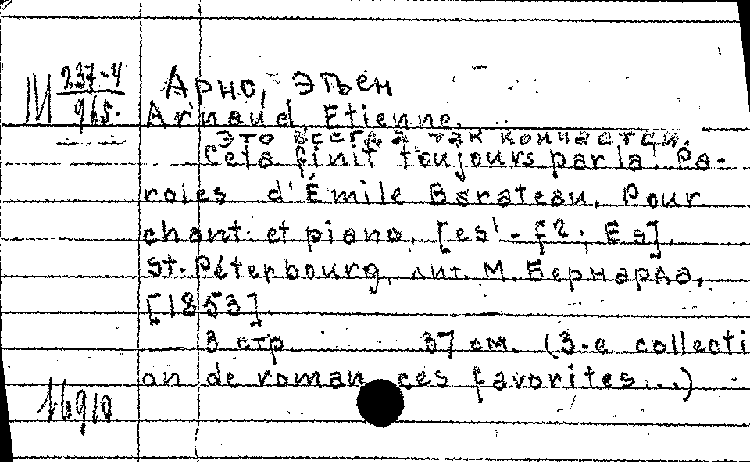 М 237-4
965.
Арно, Этьен
Arnaud Etienne.
Это всегда так кончается.
Cela finit toujours par la. Pa-
roles d'Émile Barateau. Pour
chant et piano. [es¹-f²; Es].
St. Péterbourg, лит. М. Бернарда,
[1853].
3 стр 37 см. (3-e collecti
on de roman ces favorites...)
16910